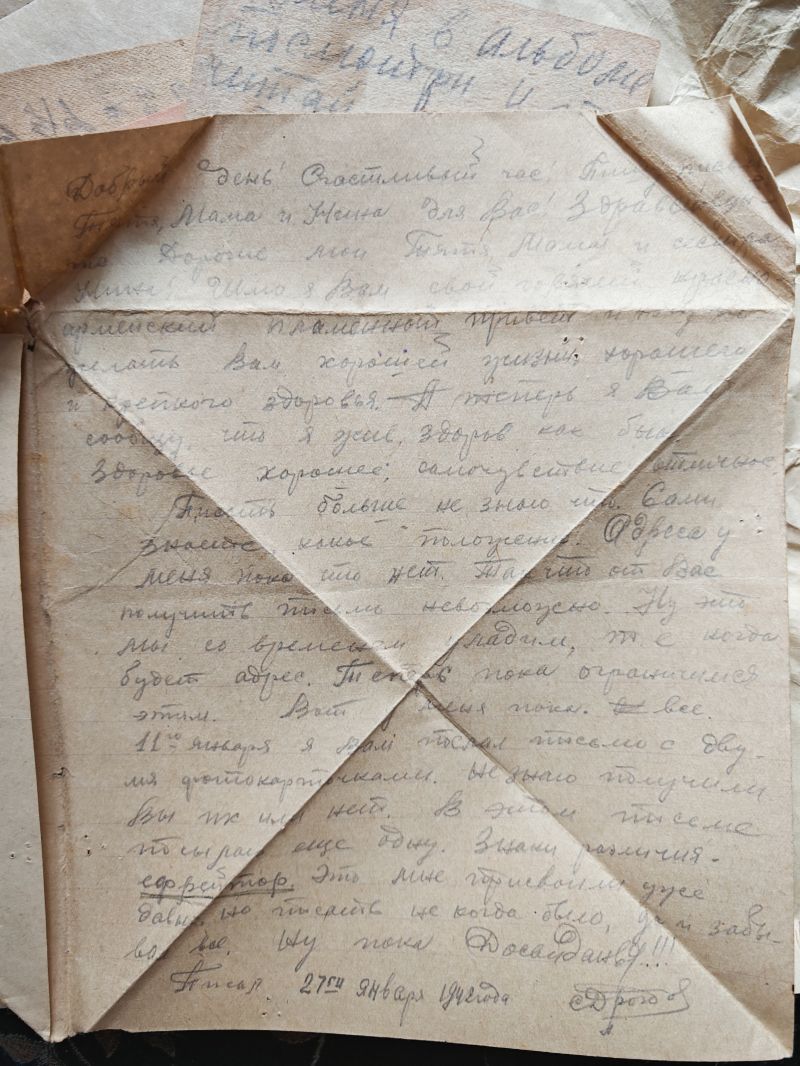 в альбоме
посмотри и
читай
Добрый день! Счастливый час! Пишу письмо
Тятя, Мама и Нина для Вас! Здравствуй
те Дорогие мои Тятя, Мама и сестра
Нина! Шлю я Вам свой горячий красно
армейский пламенный привет и хочу по
желать Вам хорошей жизни, хорошего
и крепкого здоровья. А теперь я Вам
сообщу, что я жив, здоров как бык.
Здоровье хорошее, самочувствие отличное
Писать больше не знаю что. Сами
знаете, какое положение. Адреса у
меня пока что нет. Так что от Вас
получить письмо невозможно. Ну это
мы со временем уладим, т е когда
будет адрес. Теперь пока ограничимся
этим. Вот у меня пока все.
11го января я Вам послал письмо с дву-
мя фотокарточками. Не знаю получили
Вы их или нет. В этом письме
посылаю еще одну. Знаки различия-
ефрейтор. Это мне присвоили уже
давно, но писать не когда было, да и забы-
вал все. Ну пока Досвидание!!!
Писал 27го января 1942 года